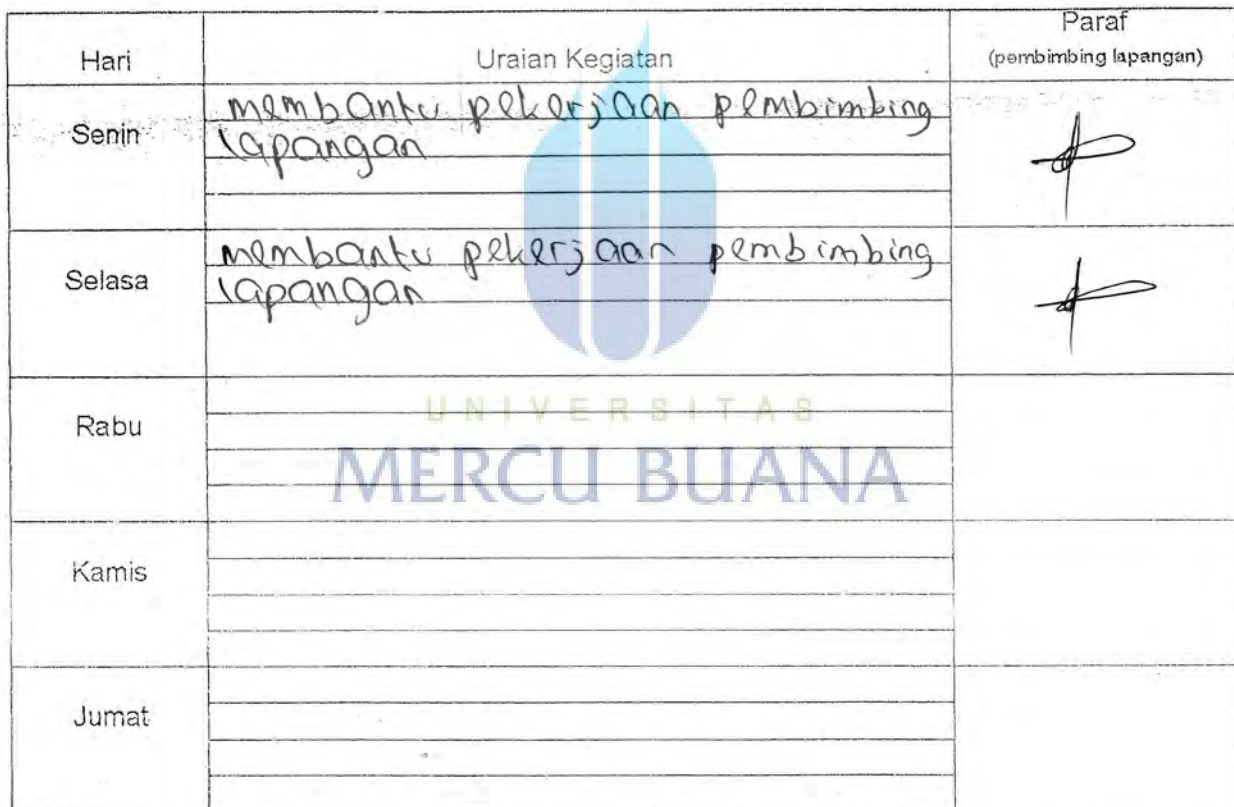 Hari
Uraian Kegiatan
Paraf
(pembimbing lapangan)
Senin
membantu pekerjaan pembimbing
lapangan
Selasa
membantu pekerjaan pembimbing
lapangan
Rabu
UNIVERSITAS
MERCU BUANA
Kamis
Jumat